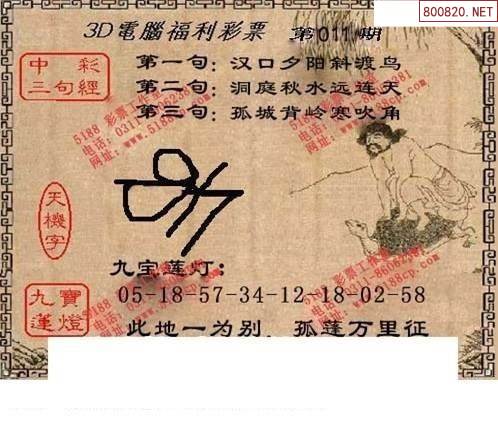 800820.NET
3D電腦福利彩票 第011期
中彩
三句經
第一句：汉口夕阳斜渡鸟
第二句：洞庭秋水远连天
第三句：孤城背岭寒吹角
天機字
九宝莲灯：
九寶
蓮燈
05-18-57-34-12 18-02-58
此地一为别，孤莲万里征